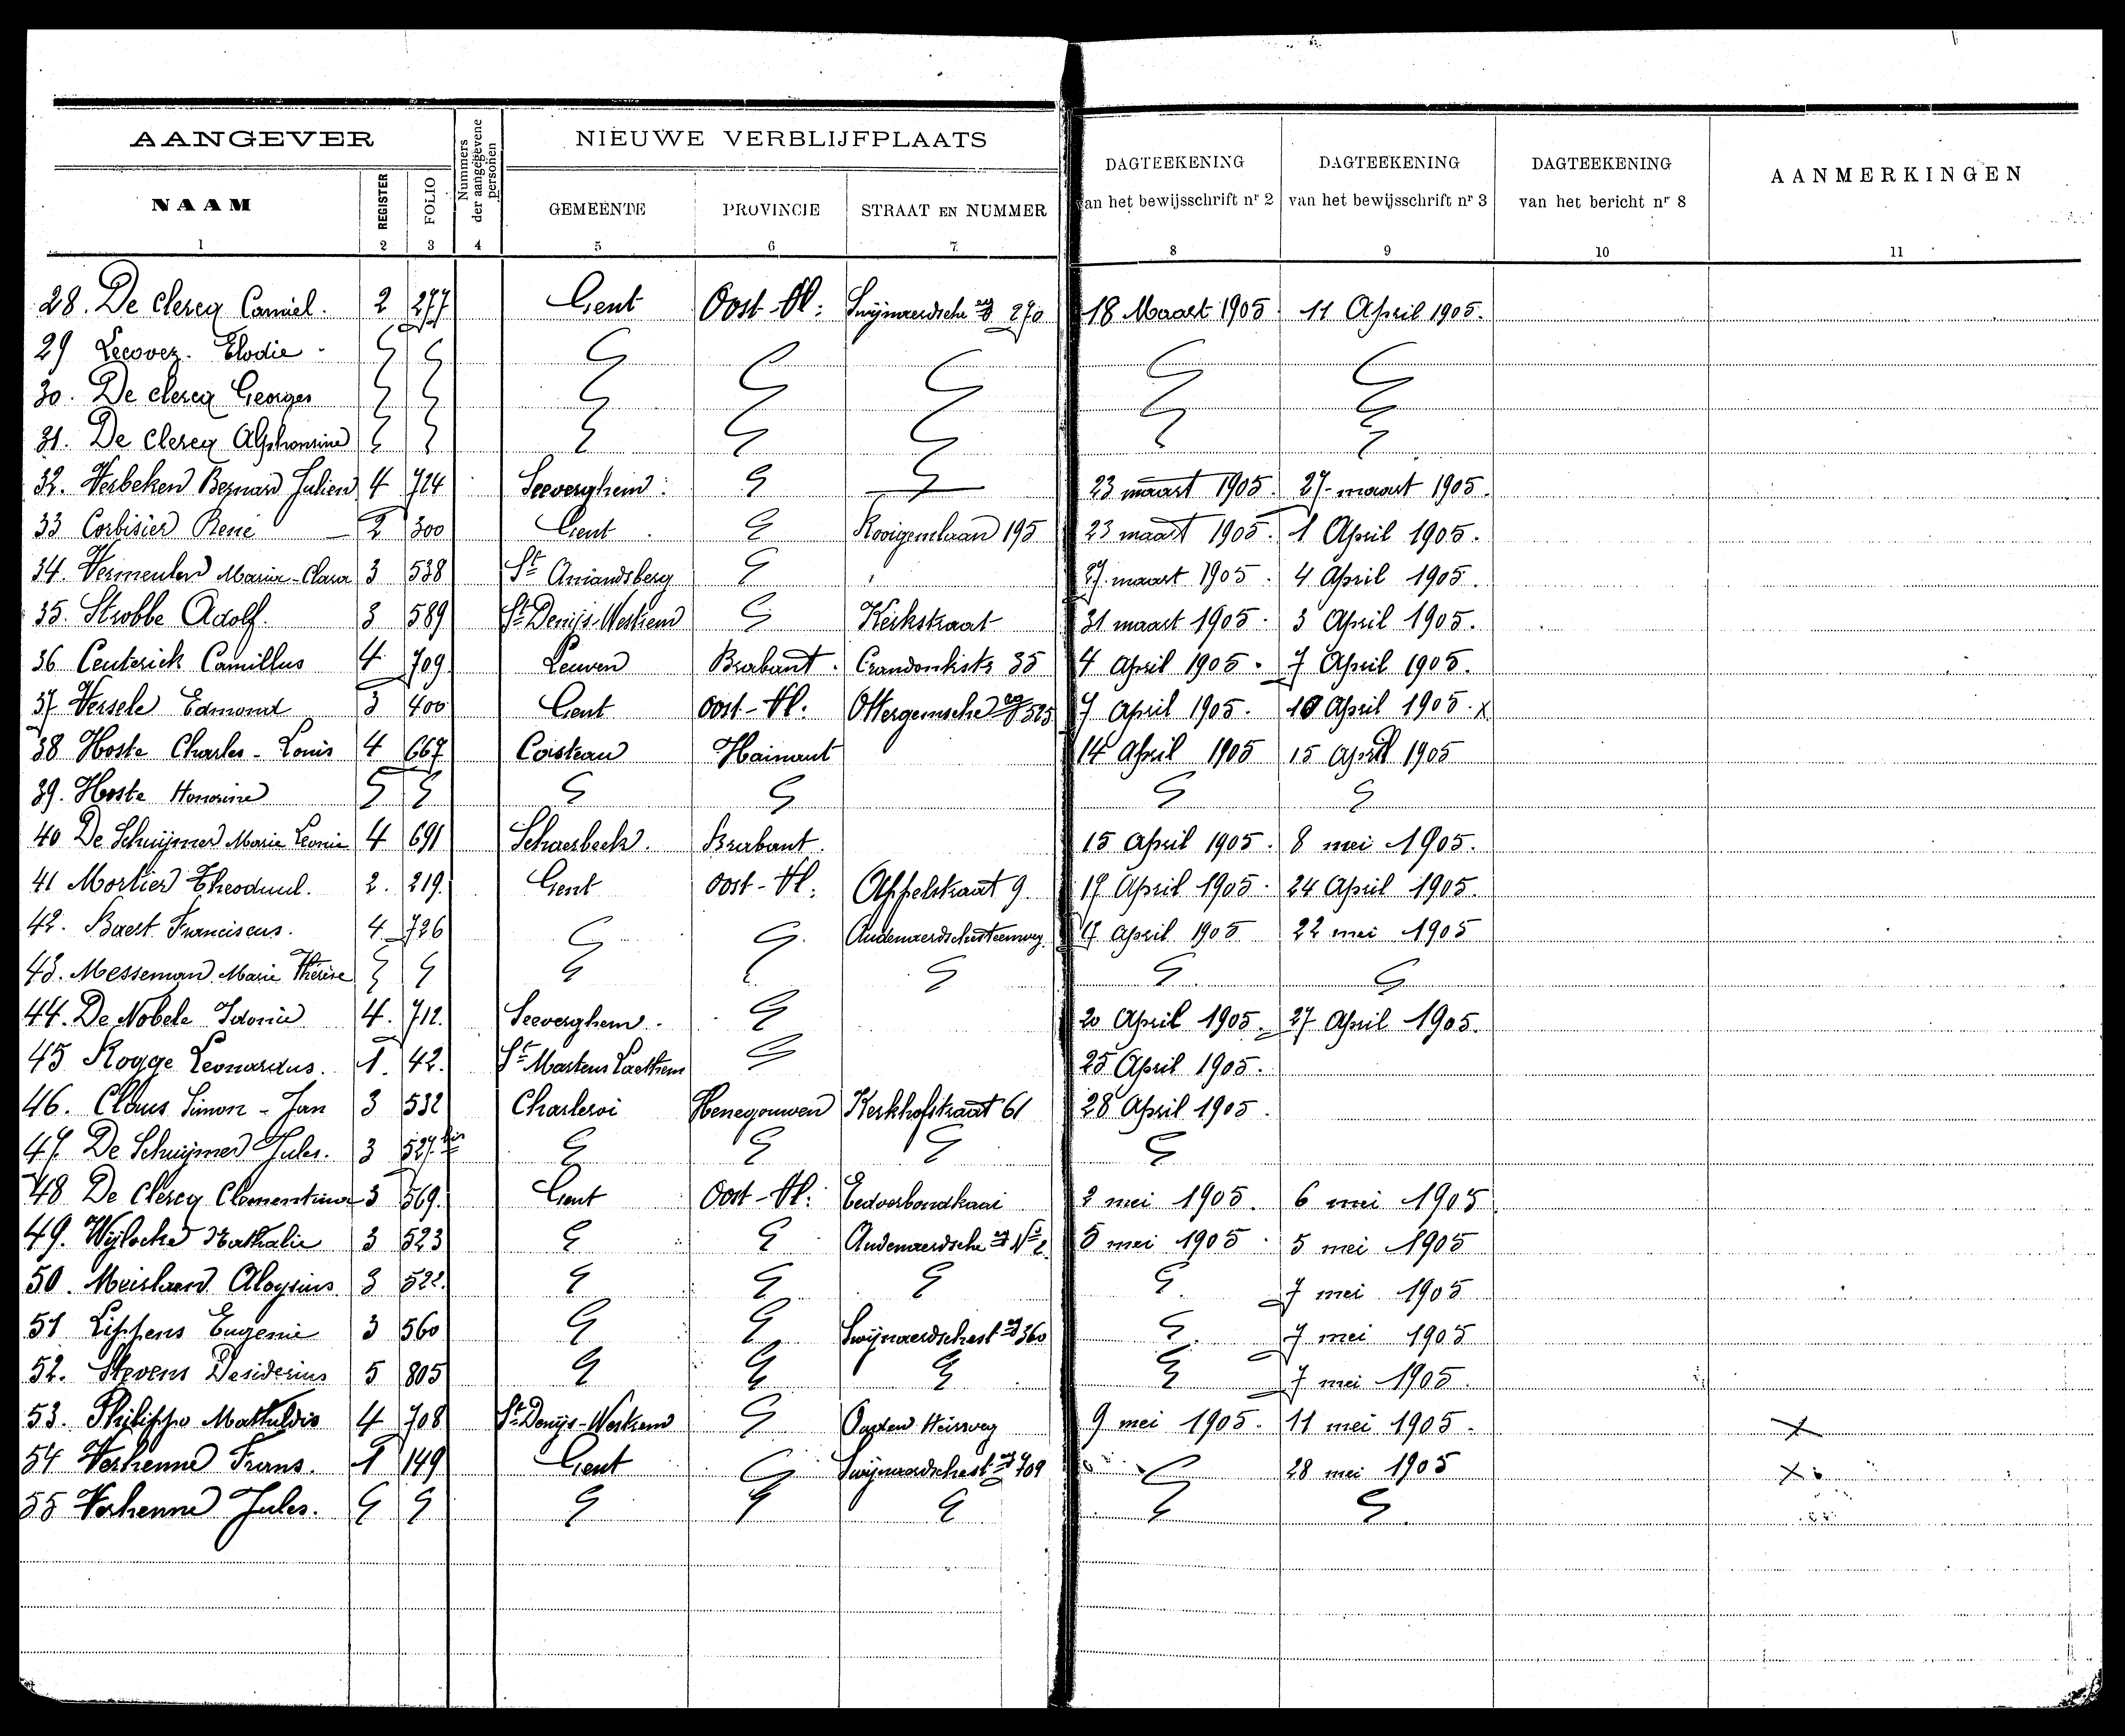 AANGEVER
Nummers der aangegevene personen
NIEUWE VERBLIJFPLAATS
DAGTEEKENING van het bewijsschrift nr 2
DAGTEEKENING van het bewijsschrift nr 3
DAGTEEKENING van het bericht nr 8
AANMERKINGEN
NAAM REGISTER FOLIO GEMEENTE PROVINCIE STRAAT EN NUMMER
1 2 3 4 5 6 7 8 9 10 11
28. De Clercq Camiel. 2 277 Gent Oost-Vl: Swijnaerdsche 270 18 Maart 1905. 11 April 1905.
29 Elodie
30. De clercq Georges
31. De Clercq Alphonsine
32. Verbeken Bernard Julien 4 724 Seeverghem. 23 maart 1905. 27 maart 1905.
33 Corbisier René 2 300 Gent Rooigemlaan 195 23 maart 1905. 1 April 1905.
34. Vermeulen Maria-Clara 3 538 St Amandsberg 27 maart 1905. 4 April 1905.
35. Strobbe Adolf. 3 589 St Denijs-Westrem Kerkstraat 31 maart 1905. 3 April 1905.
36 Ceuterick Camillus 4 709 Leuven Brabant. 35 4 April 1905. 7 April 1905.
37 Versele Edmond 3 400 Gent Oost-Vl: Ottergemsche 525 7 April 1905. 10 April 1905. x
38 Hoste Charles-Louis 4 667 Hainaut 14 April 1905 15 April 1905
39. Hoste Honorine
40 De Schuijmer Marie Leonie 4 691 Schaerbeek. Brabant. 15 April 1905. 8 mei 1905.
41 Mortier Theoduul. 2. 219. Gent Oost-Vl: Appelstraat 9 17 April 1905. 24 April 1905.
42. Baert Franciscus. 4 726 Audenaerdschesteenweg 17 April 1905 22 mei 1905
43. Messeman Marie Thérèse
44. De Nobele Idonie 4. 712. Seeverghem. 20 April 1905. 27 April 1905.
45 Rogge Leonardus. 1. 42. St Martens Laethem 25 April 1905.
46. Claus Simon-Jan 3 532 Charleroi Henegouwen Kerkhofstraat 61 28 April 1905.
47. De Schuijmer Jules. 3 527 bis
48 De Clercq Clementina 3 569. Gent Oost-Vl: Eedverbondkaai 2 mei 1905. 6 mei 1905
49. Nathalie 3 523 Audenaerdsche No 2 5 mei 1905. 5 mei 1905
50. Aloysius. 3 522. 7 mei 1905
51 Lippens Eugenie 3 560 Swijnaerdschest 360 7 mei 1905
52. Stevens Desiderius 5 805 7 mei 1905.
53. Philippo Mathildis 4 708 St Denijs-Westrem Ouden Heirweg 9 mei 1905. 11 mei 1905. x
54 Verhenne Frans. 1 149 Gent Swijnaerdschest 709 28 mei 1905 x
55 Verhenne Jules.